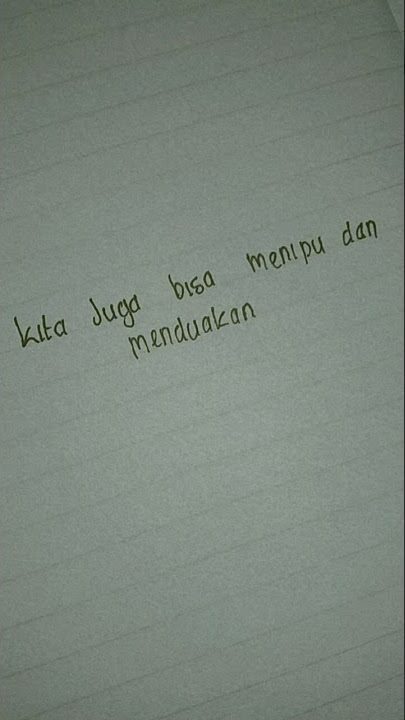 kita Juga bisa menipu dan
menduakan